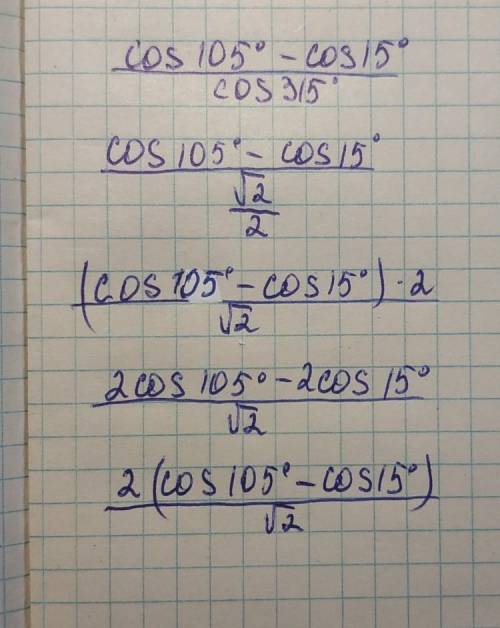 (cos 105° - cos 15°) / cos 315°
(cos 105° - cos 15°) / (√2 / 2)
((cos 105° - cos 15°) · 2) / √2
(2cos 105° - 2cos 15°) / √2
2(cos 105° - cos 15°) / √2